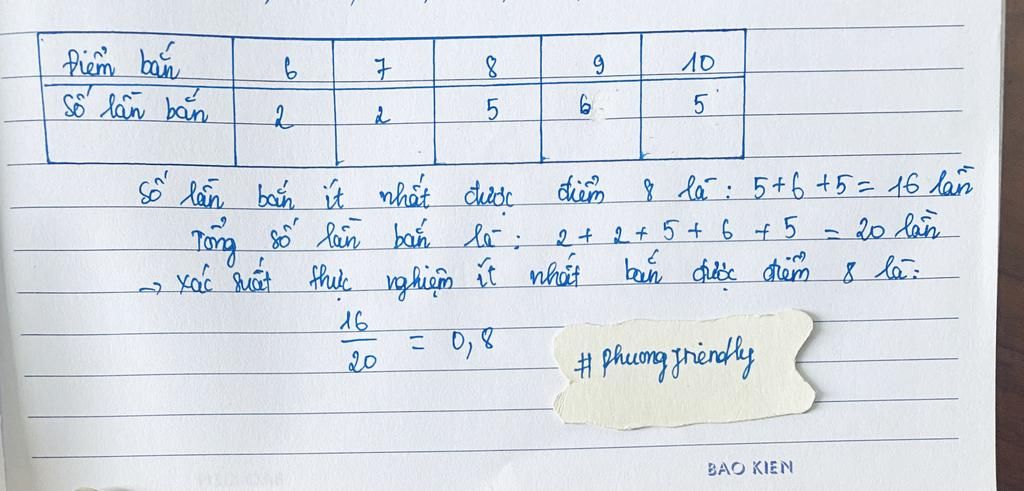 Điểm bắn 6 7 8 9 10
Số lần bắn 2 2 5 6 5
Số lần bắn ít nhất được điểm 8 là: 5+6+5= 16 lần
Tổng số lần bắn là: 2 + 2 + 5 + 6 + 5 = 20 lần
→ Xác suất thực nghiệm ít nhất bắn được điểm 8 là:
16
20
= 0,8
# phuongfriendly
BAO KIEN